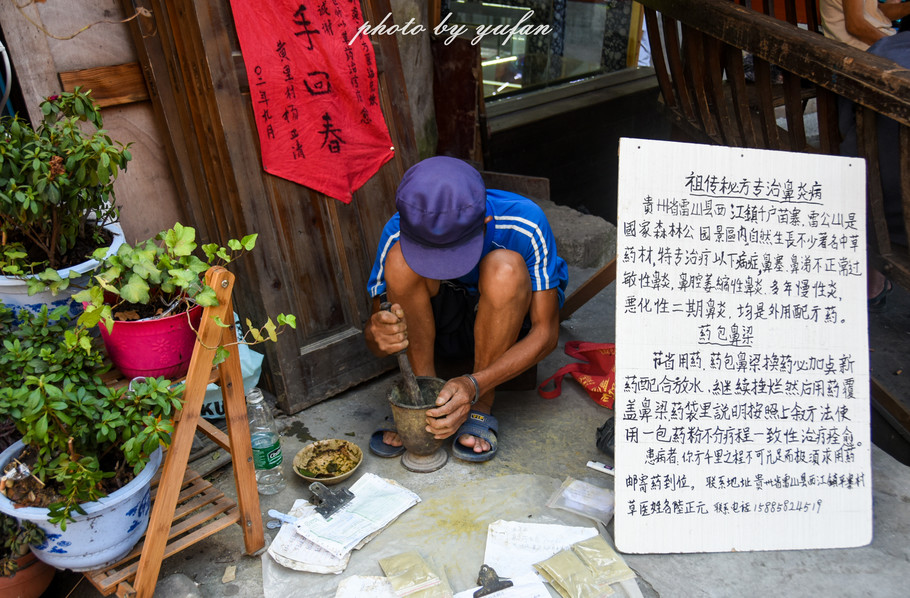 photo by yufan
手回春
祖传秘方专治鼻炎病
貴州省雷山县西江鎮千户苗寨,雷公山是
國家森林公园景區内自然生長不少著名中草
药材,特专治疗以下病症,鼻塞,鼻涕不正常过
敏性鼻炎,鼻腔萎缩性鼻炎,多年慢性炎,
悪化性二期鼻炎,均是外用配方药。
药包鼻梁
节省用药,药包鼻梁换药必加点新
药配合放水,继续捶烂然后用药覆
盖鼻梁药袋里説明按照上余方法使
用一包药粉不分疗程一致性治疗痊愈。
患病者,你方千里之程不可凡足而极须求用药
邮寄药到位。联系地址貴州省雷山县西江鎮羊排村
草医姓名陸正元 联系电話15885824519